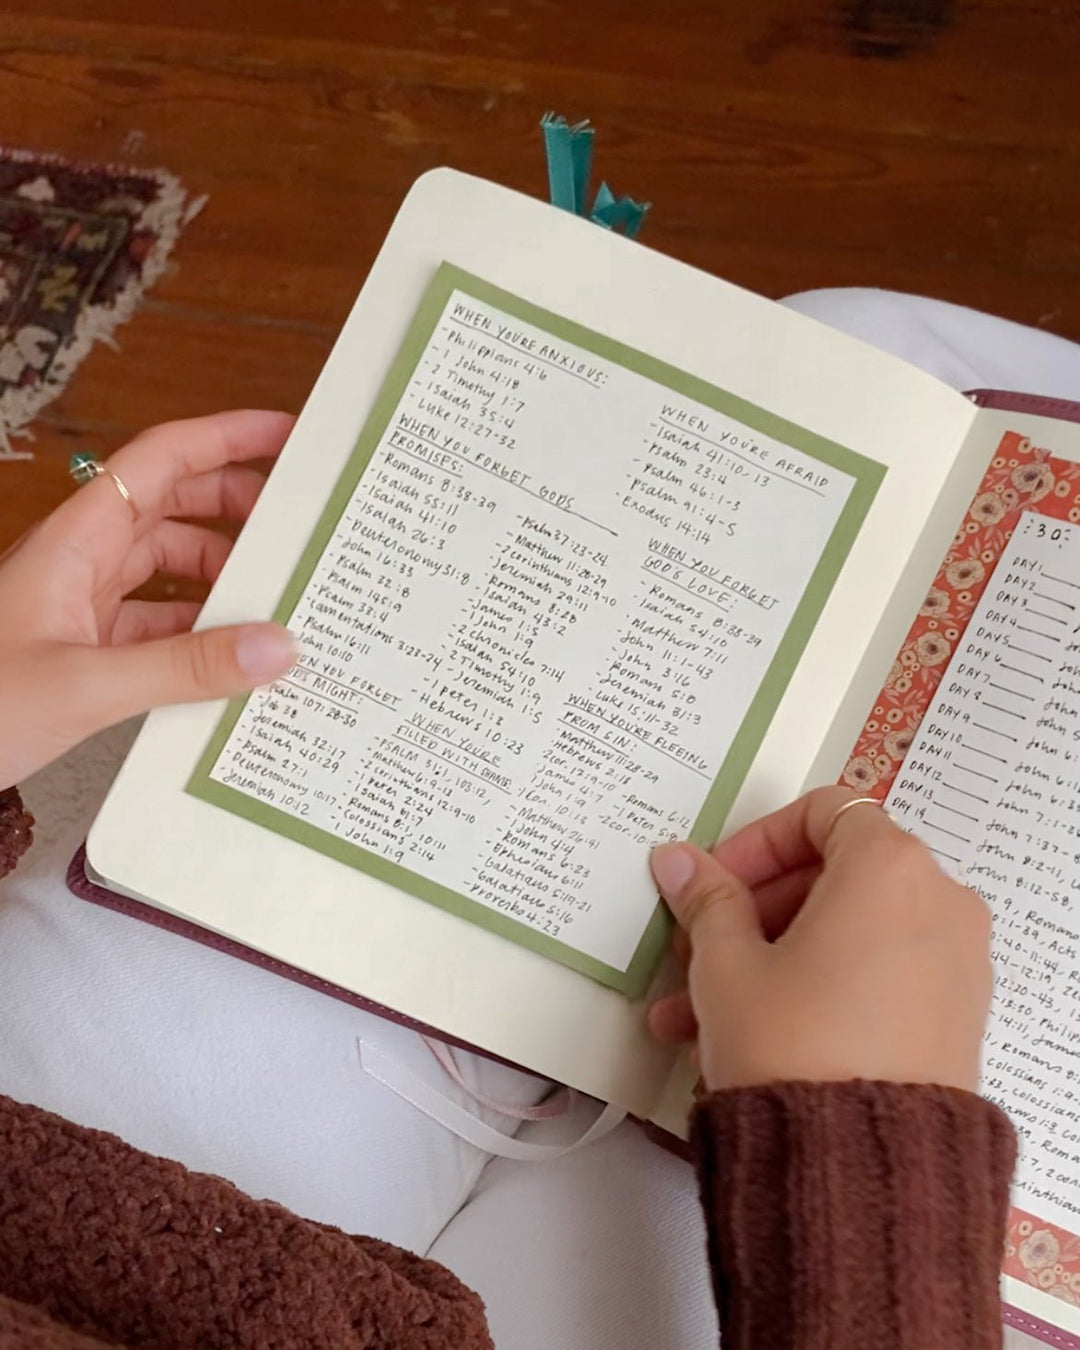 WHEN YOU'RE ANXIOUS:
- Philippians 4:6
- 1 John 4:18
- 2 Timothy 1:7
- Isaiah 35:4
- Luke 12:27-32
WHEN YOU FORGET GODS
PROMISES:
- Romans 8:38-39
- Isaiah 55:11
- Isaiah 41:10
- Isaiah 26:3
- Deuteronomy 31:8
- John 16:33
- Psalm 32:8
- Psalm 145:9
- Psalm 33:4
- Lamentations 3:23-24
- Psalm 16:11
- John 10:10
- Psalm 37:23-24
- Matthew 11:28-29
- 2 corinthians 12:9-10
- Jeremiah 29:11
- Romans 8:28
- Isaiah 43:2
- James 1:5
- 1 John 1:9
- 2 chronicles 7:14
- Isaiah 54:10
- 2 Timothy 1:9
- Jeremiah 1:5
- 1 peter 1:3
- Hebrews 10:23
WHEN YOU FORGET
MIGHT:
- Psalm 107:28-30
- Job 38
- Jeremiah 32:17
- Isaiah 40:29
- Psalm 27:1
- Deuteronomy 10:17
- Jeremiah 10:12
WHEN YOU'RE
FILLED WITH SHAME:
- PSALM 34:5, 103:12,
- Matthew 6:9-13
- 2 Corinthians 12:9-10
- 1 Peter 2:24
- Isaiah 61:7
- Romans 8:1, 10:11
- Colossians 2:14
- 1 John 1:9
WHEN YOU'RE AFRAID
- Isaiah 41:10, 13
- Psalm 23:4
- Psalm 46:1-3
- Psalm 91:4-5
- Exodus 14:14
WHEN YOU FORGET
GOD'S LOVE:
- Romans 8:38-39
- Isaiah 54:10
- Matthew 7:11
- John 11:1-43
- John 3:16
- Romans 5:8
- Jeremiah 31:3
- Luke 15:11-32
WHEN YOU'RE FLEEING
FROM SIN:
- Matthew 11:28-29
- Hebrews 2:18
- 2cor. 12:9-10
- James 4:7
- 1 John 1:9
- 1 Cor. 10:13
- Matthew 26:41
- 1 John 4:4
- Romans 6:23
- Ephesians 6:11
- Galatians 5:19-21
- Galatians 5:16
- Proverbs 4:23
- Romans 6:12
- 1 Peter 5:8
- 2cor. 10:
30
DAY 1
DAY 2
DAY 3
DAY 4
DAY 5
DAY 6
DAY 7
DAY 8
DAY 9
DAY 10
DAY 11
DAY 12
DAY 13
DAY 14
John
John
John
John 5
John 6:
John 6:
John 6:3
John 7:1-2
John 7:37-8
John 8:2-11,
John 8:12-58,
John 9, Romans
:1-39, Acts
:40-11:44,
44-12:19,
12:20-43,
-14:11, James
, Romans 8:
Colossians 1:9-
, colossians
Hebrews 1:3